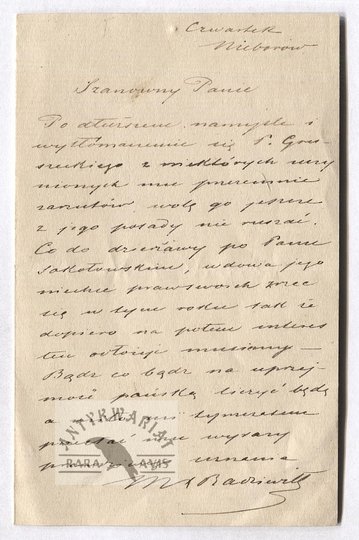 Czwartek
Nieborów
Szanowny Panie
Po dłuższem namyśle i
wytłómaczeniu się P. Gru-
szeckiego z niektórych uczy
nionych mu przezemnie
zarzutów, wolę go jeszcze
z jego posady nie ruszać.
Co do dzierżawy po Panu
Sokołowskim, wdowa jego
niechce praw swoich zrzec
się w tym roku tak że
dopiero na potem interes
ten odłożyć musiemy —
Bądź co bądź na uprzej
mość pańską liczyć będę
a tymczasem
wyrazy
uznania
Radziwiłł
ANTYKWARIAT
RARA AVIS